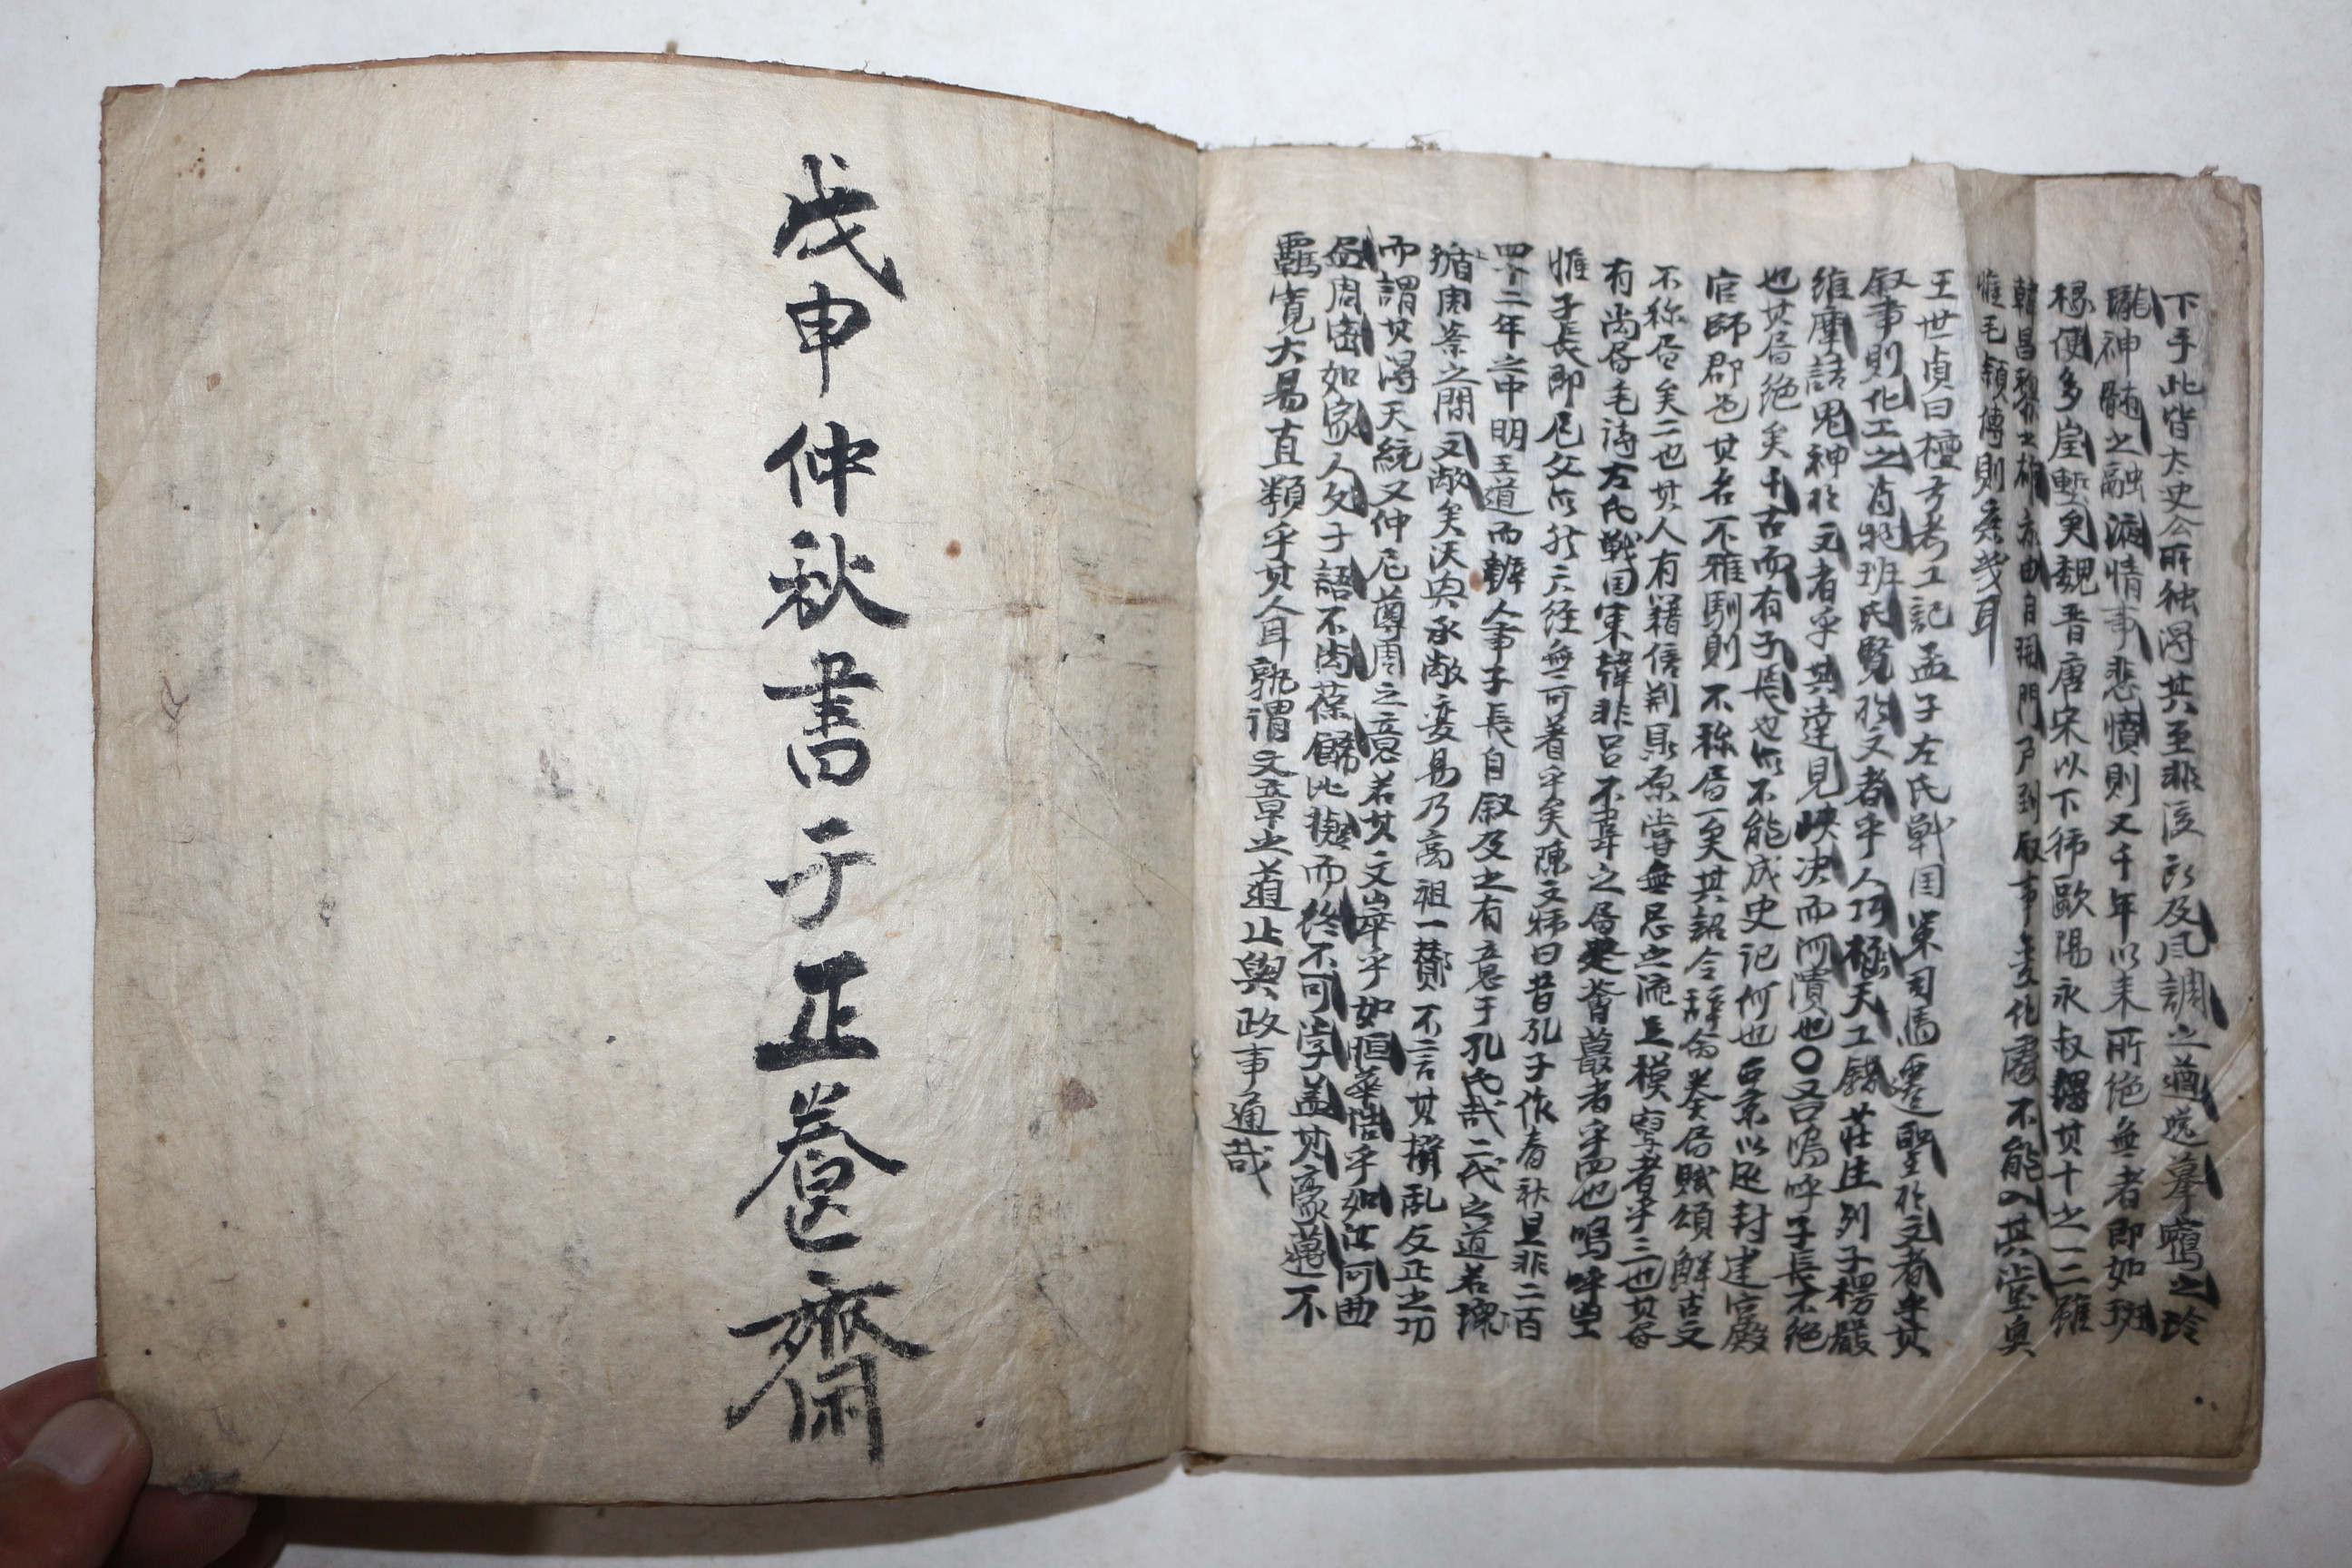 下手此皆太史公所独得其至非後所及风調之遒逸摹寫之玲
瓏神髄之融液情事悲憤則又千年以来所絶無者即如班
掾便多崖塹矣魏晋唐宋以下歐陽永叔得其十之一二雖
韓昌黎之雄亦由自開門戶到叙事變化處不能入其堂奥
惟毛頴傳則庶幾耳
王世貞曰檀弓考工記孟子左氏戦国策司馬遷聖於文者乎其
叙事則化工之肖物班氏賢於文者乎人巧極天工錯荘生列子楞嚴
維摩詰鬼神於文者乎其達見峡决而河潰也〇又曰嗚呼子長不絶
也其書絶矣千古而有子長也亦不能成史记何也西京以还封建宫殿
官師郡邑其名不雅馴則不称書一矣其詔令辞命奏書賦頌鮮古文
不称書矣二也其人有籍信荆聶原嘗無忌之流足模寫者乎三也其書
有尚書毛诗左氏戦国策韓非呂不韋之書足薈蕞者乎四也嗚呼豈
惟子長即尼父亦於六经無可着手矣陳文曰昔孔子作春秋旦非二百
四十二年之中明王道而辨人事子長自叙及之有意于孔氏哉二代之道若環
循周秦之閒文敝矣汉興承敝变易乃高祖一賛不言其撥乱反正之功
而謂其得天統又仲尼尊周之意若其文峷乎如恒華浩乎如江河曲
盡周密如家人父子語不尚葆餙比擬而終不可学盖其豪邁不
羈寛大易直類乎其人耳孰谓文章之道止與政事通哉
戊申仲秋書于正養齋